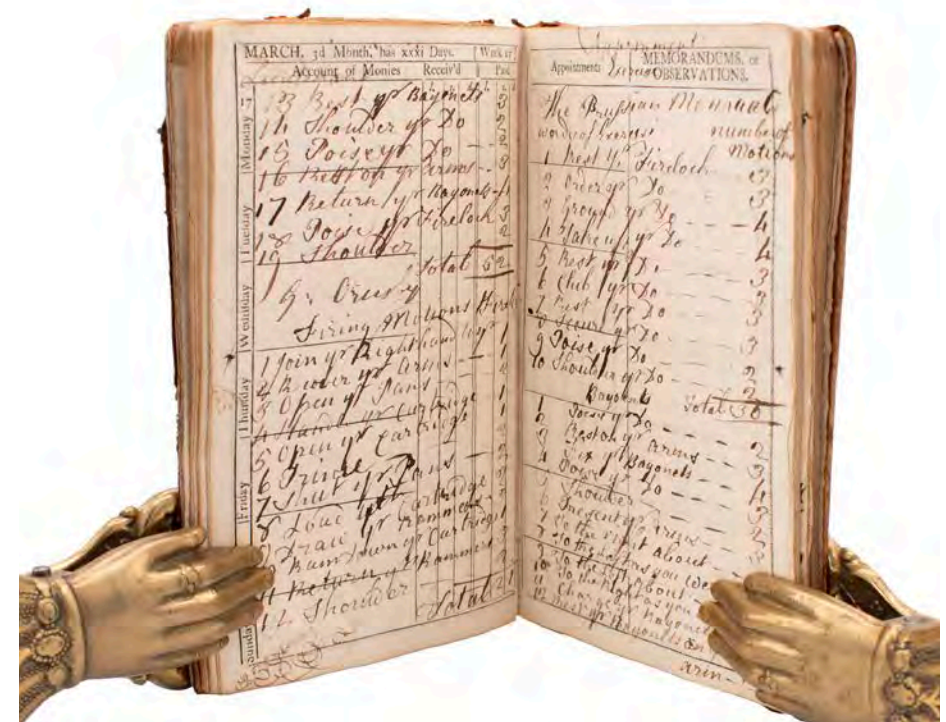 MARCH. 3d Month. has xxxi Days. Week 12
Account of Monies Receiv'd Paid
17 Monday
13 Rest yr Bayonets 3
14 Shoulder yr Do 2
15 Poise yr Do — 2
16 Rest on yr Arms — 3
Tuesday
17 Return yr Bayonets
18 Poise yr Firelock 3
19 Shoulder 2
Total 52
Wednesday
Firing Motions
1 Join yr Right hand to yr 1
2 Recover yr Arms — 1
3 Open yr Pans
Thursday
4 Handle yr Cartridge — 1
5 Open yr Cartridge
6 Prime
7 Shut yr Pans —
Friday
8 Load with Cartridge
9 Draw yr Rammers
10 Ram down yr Cartridge
11 Return yr Rammers
12 Shoulder
Total
Appointments MEMORANDUMS, or OBSERVATIONS.
The Prussian Mannual
words of Exercise number of
Motions
1 Rest yr Firelock 3
2 Order yr Do 3
3 Ground yr Do — 4
4 Take up yr Do 4
5 Rest yr Do — 3
6 Club yr Do — 3
7 Rest yr Do
8 Secure yr Do 3
9 Poise yr Do
10 Shoulder yr Do — 2
Total 30
Bayonets
1 Poise yr Do — 2
2 Rest on yr Arms 3
3 Fix yr Bayonets —
4 Poise yr Do — 4
5 Shoulder —
6 Present yr Arms —
7 To the right About —
8 To the left as you We
9 To the left about —
10 To the right as you
11 Charge yr Bayonet
12 Rest yr Bayonets on
arm